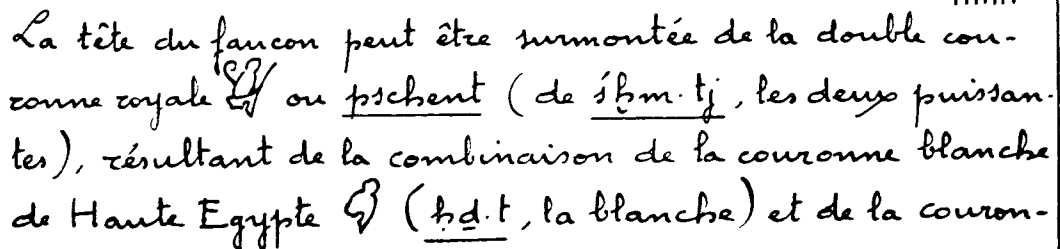 La tête du faucon peut être surmontée de la double cou-
ronne royale ou pschent (de śḫm.tj, les deux puissan-
tes), résultant de la combinaison de la couronne blanche
de Haute Egypte (ḥḏ.t, la blanche) et de la couron-